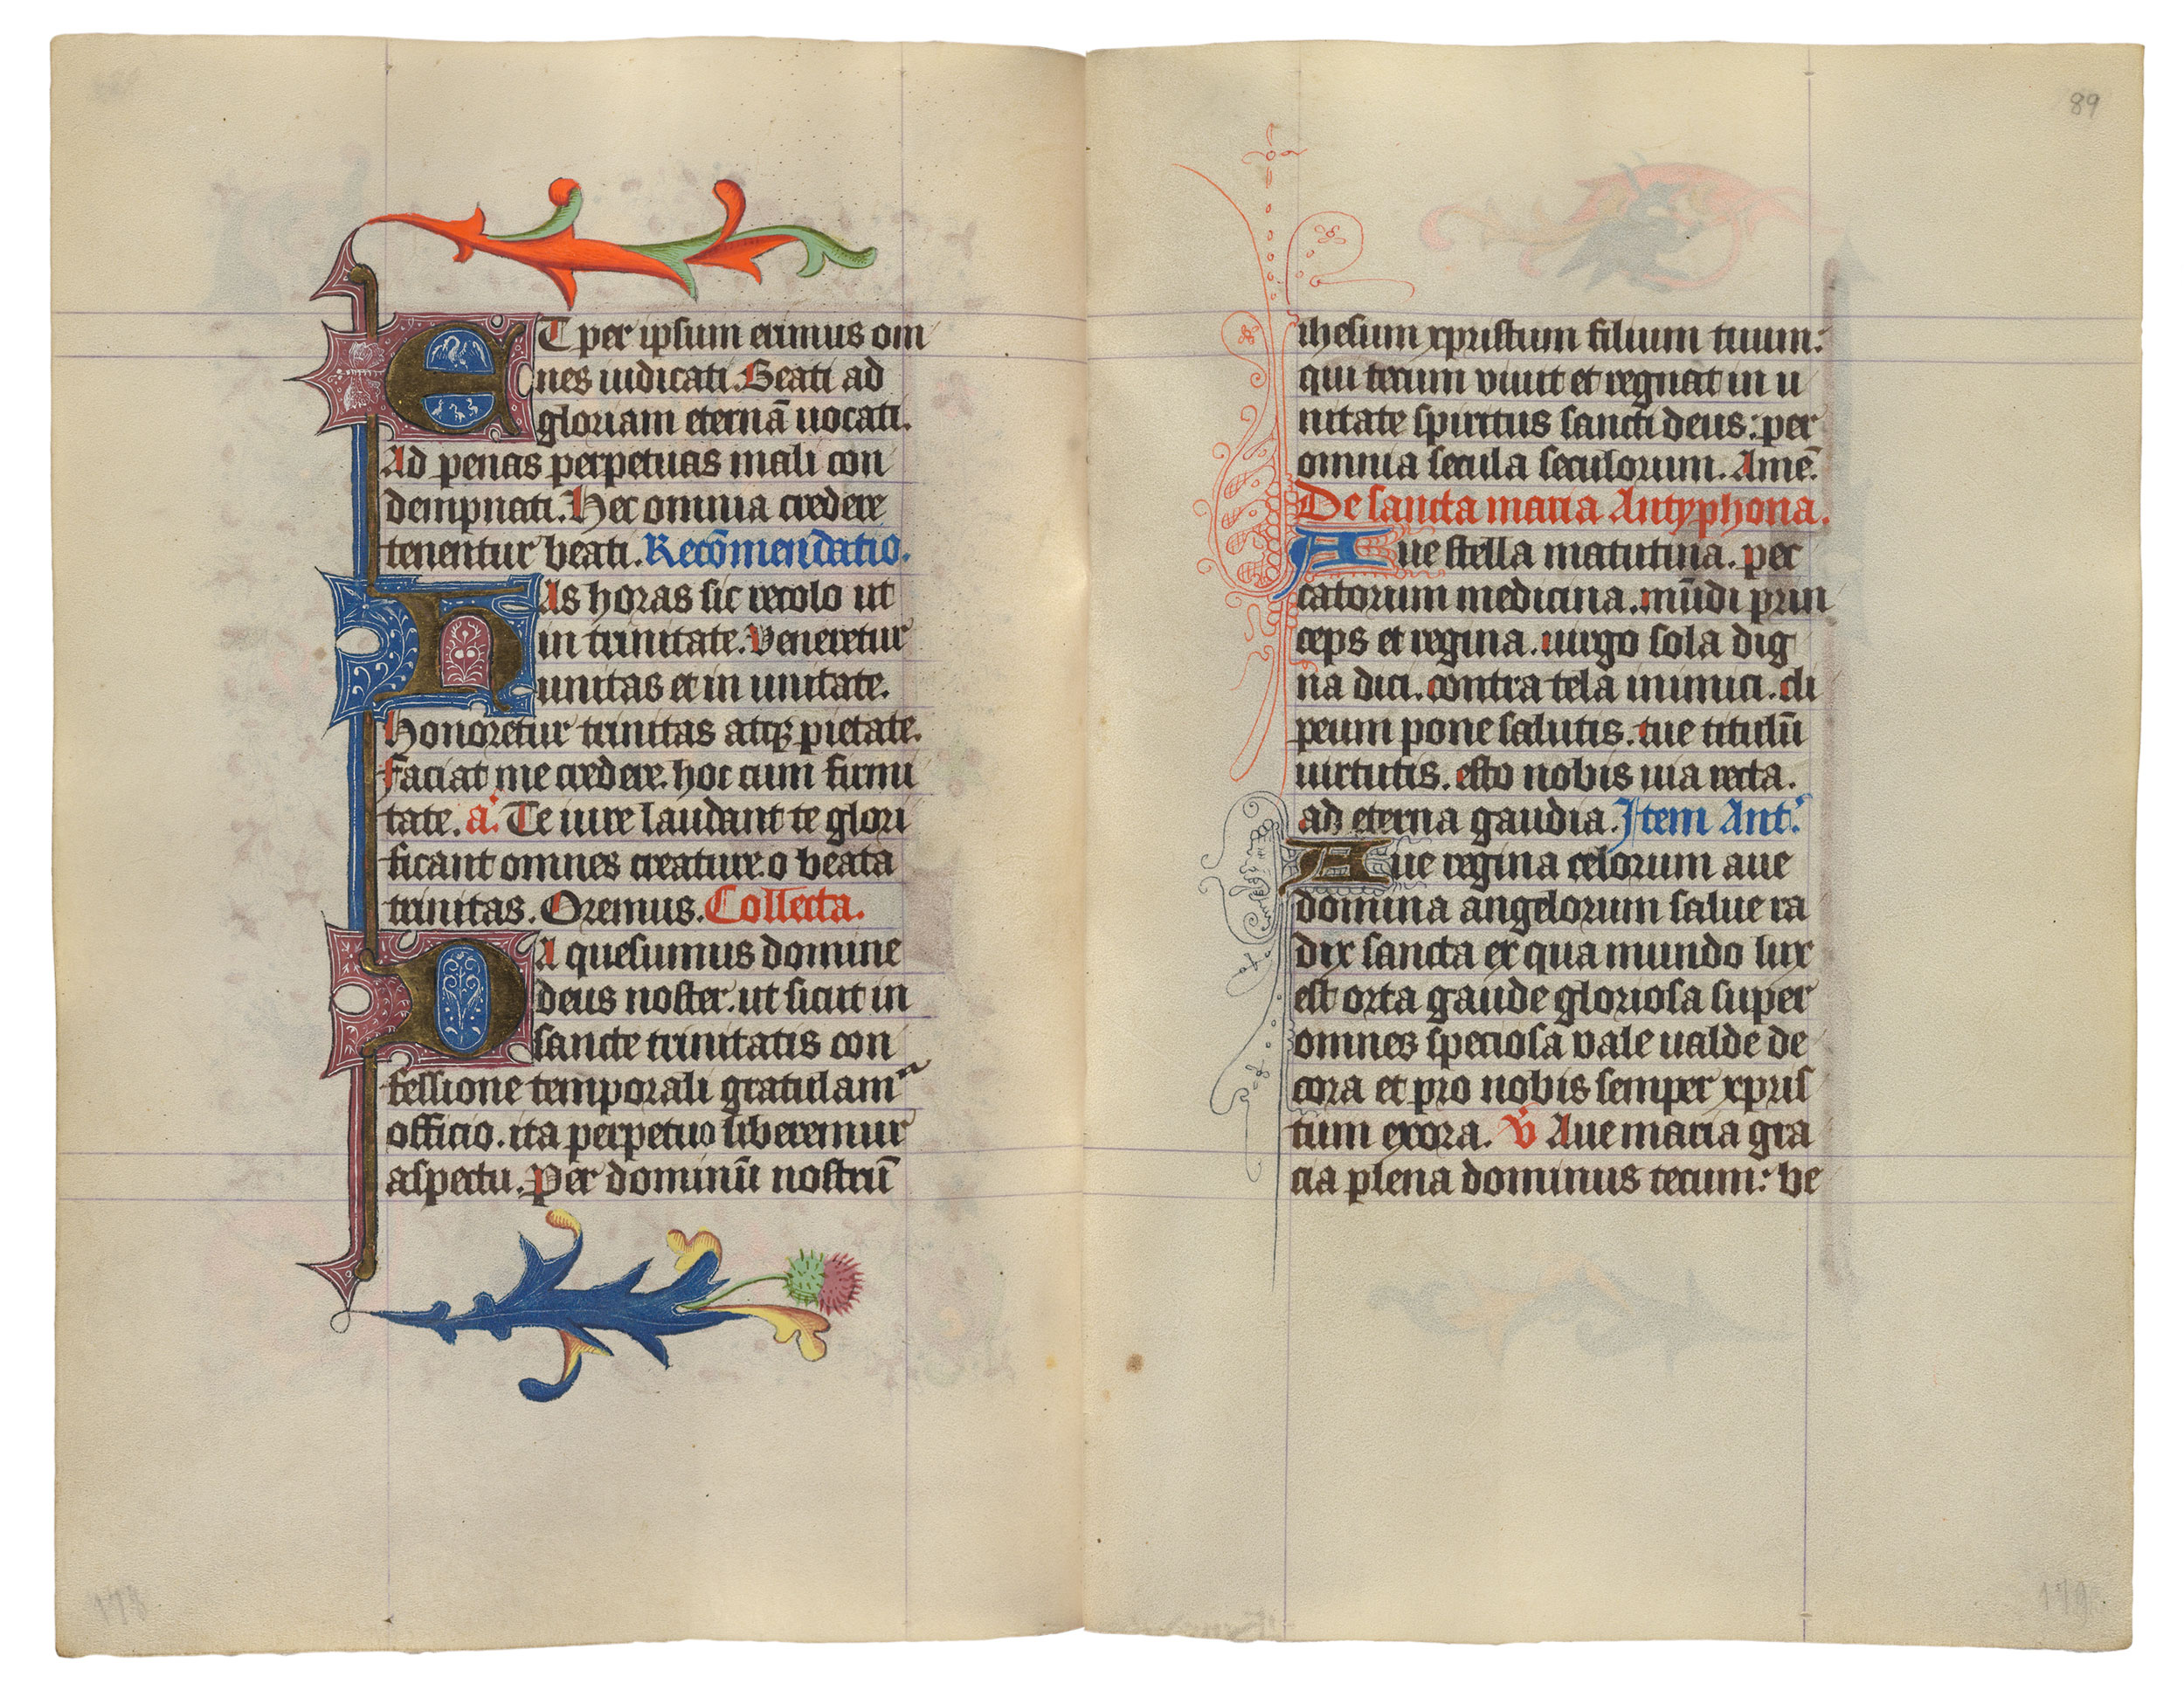 ET per ipsum erimus om
nes iudicati. Beati ad
gloriam eternā uocati.
Ad penas perpetuas mali con
dempnati. Hec omnia credere
tenentur beati. Recōmendatio.
HAs horas sic recolo ut
in trinitate. Veneretur
unitas et in unitate.
Honoretur trinitas atqȝ pietate.
Faciat me credere. hoc cum firmi
tate. a. Te iure laudant te glori
ficant omnes creature. o beata
trinitas. Oremus. Collecta.
DA quesumus domine
deus noster. ut sicut in
sancte trinitatis con
fessione temporali gratulam
officio. ita perpetuo liberemur
aspectu. Per dominū nostrū
89
ihesum xpristum filium tuum:
qui tecum viuit et regnat in u
nitate spiritus sancti deus: per
omnia secula seculorum. Amē.
De sancta maria Antyphona.
Aue stella matutina. pec
catorum medicina. mūdi prin
ceps et regina. uirgo sola dig
na dici. contra tela inimici. cli
peum pone salutis. tue titulū
uirtutis. esto nobis uia recta.
ad eterna gaudia. Item Ant.
Aue regina celorum aue
domina angelorum salue ra
dix sancta ex qua mundo lux
est orta gaude gloriosa super
omnes speciosa vale ualde de
cora et pro nobis semper xpris
tum exora. V Aue maria gra
cia plena dominus tecum: be
178
179